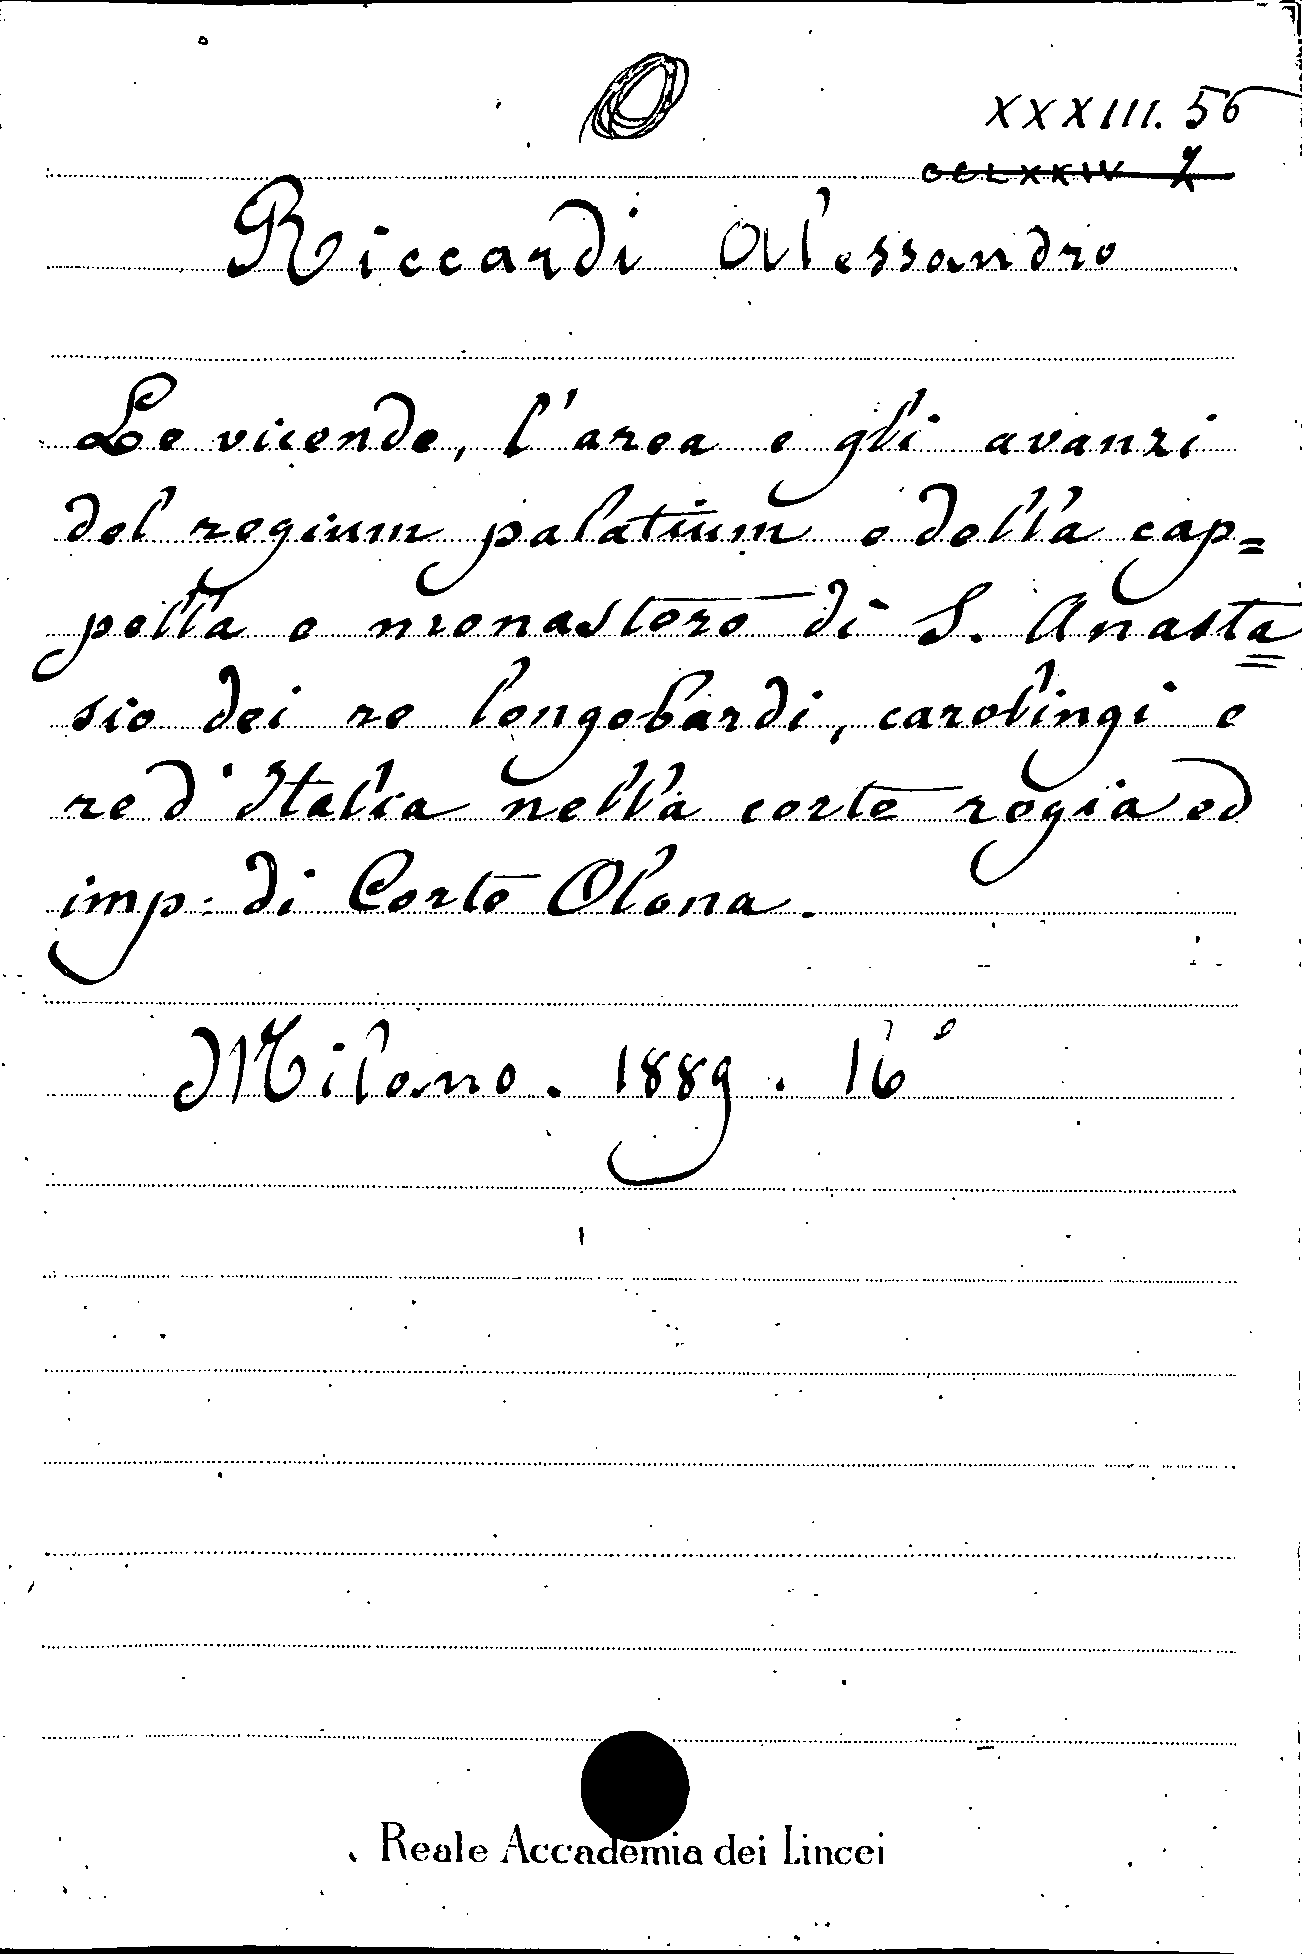 XXXIII. 56
CCLXXIV 7
Riccardi Alessandro
Le vicende, l'area e gli avanzi
del regium palatium e della cap=
pella e monastero di S. Anasta=
sio dei re longobardi, carolingi e
re d'Italia nella corte regia ed
imp: di Corte Olona.
Milano. 1889. 16°
Reale Accademia dei Lincei